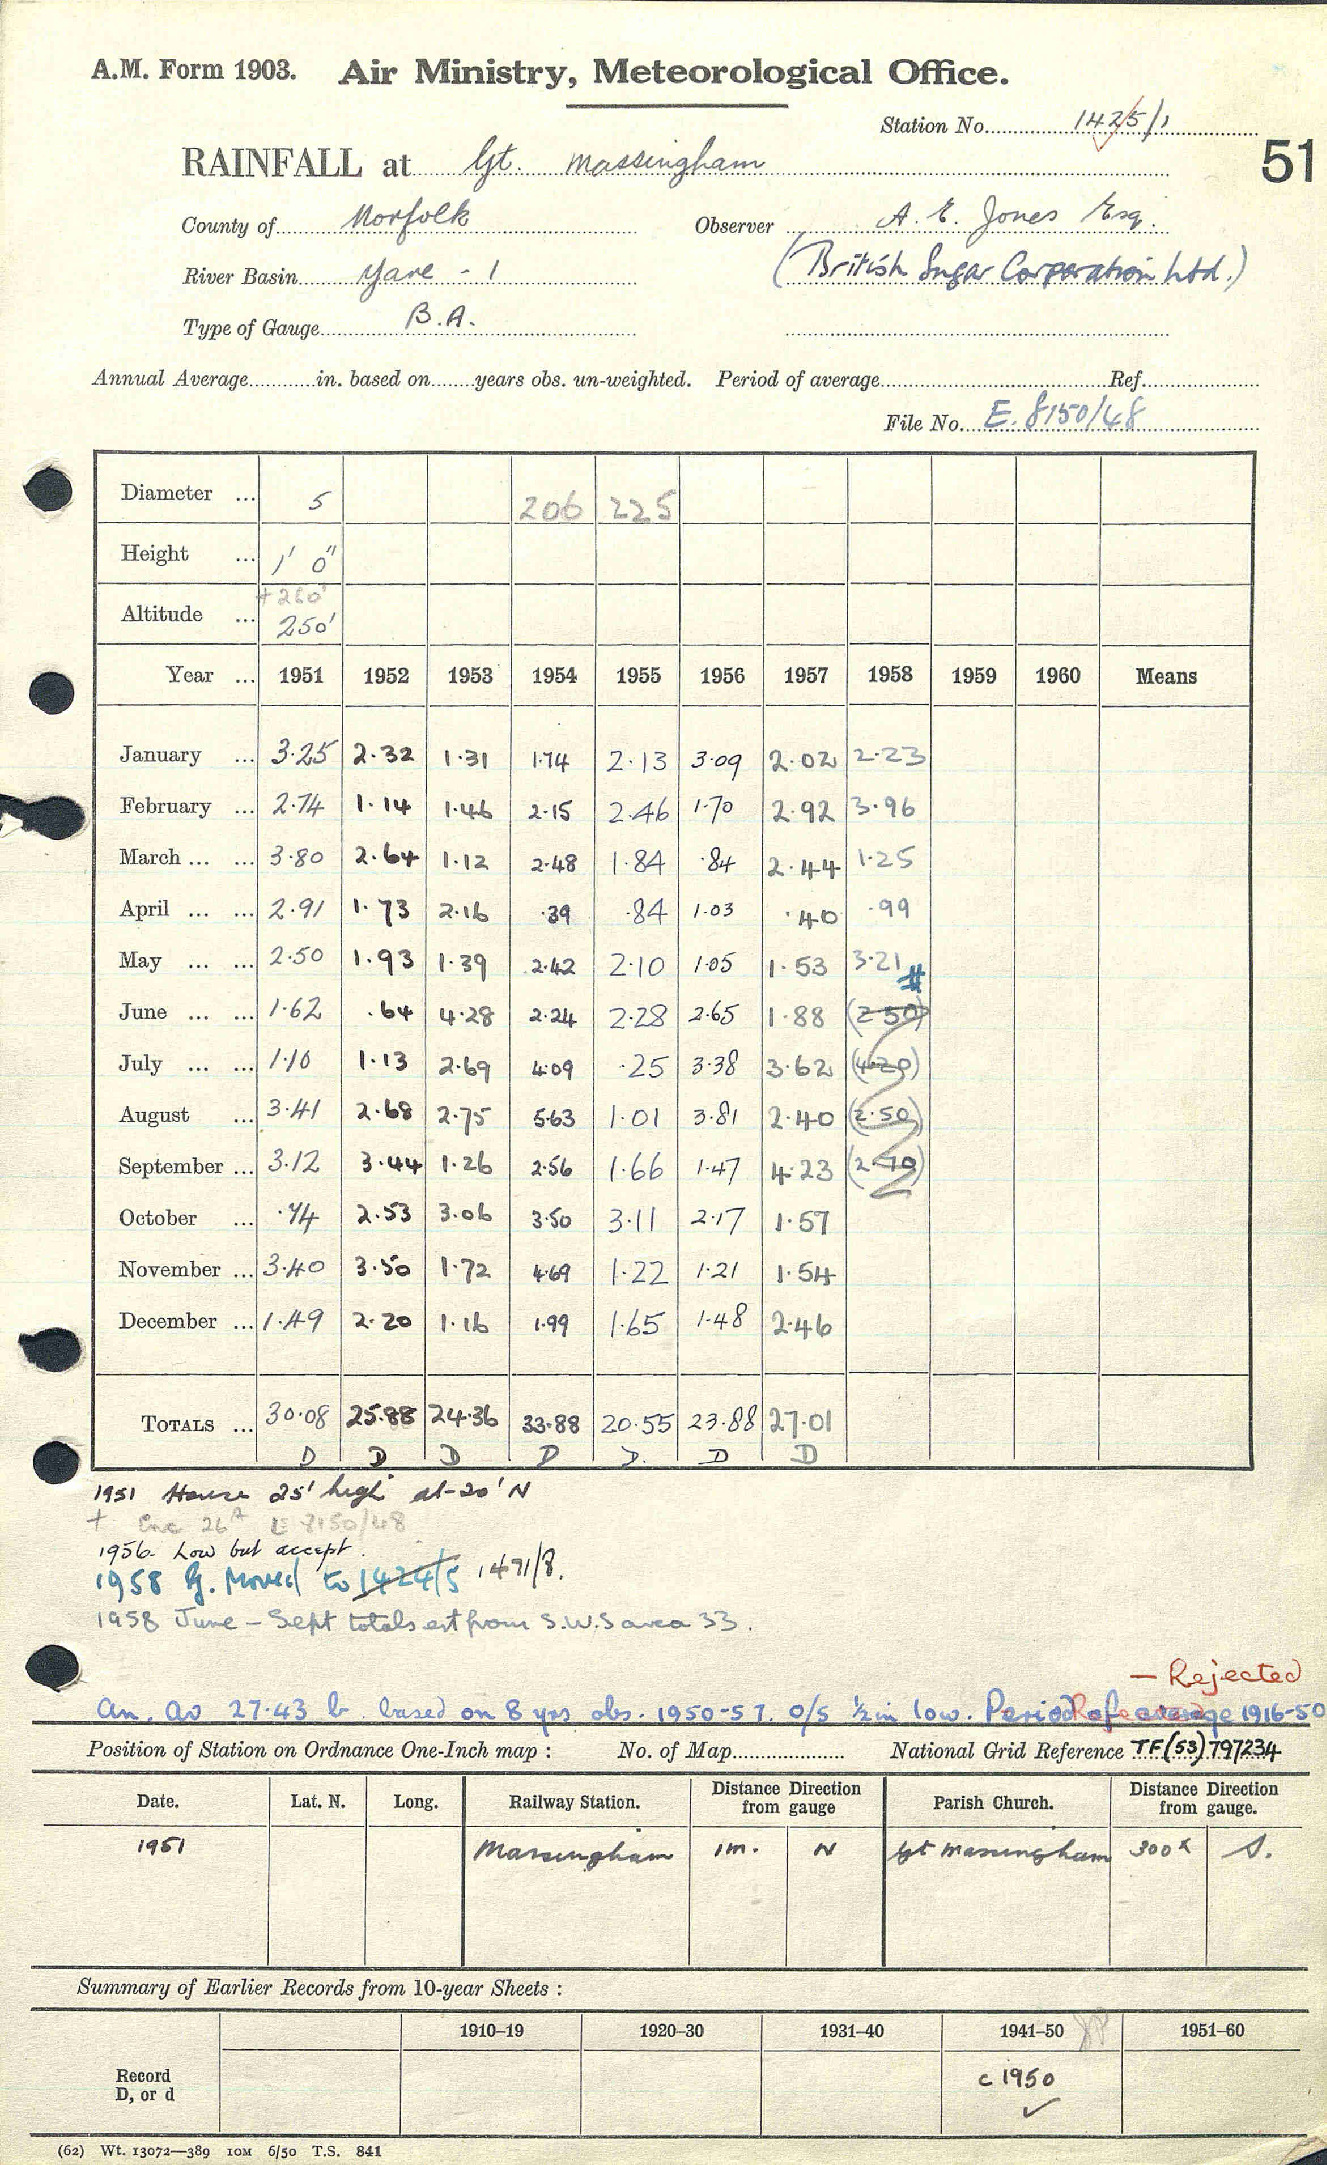 A.M. Form 1903. Air Ministry, Meteorological Office.
Station No. 1425/1
RAINFALL at Gt. Massingham
51
County of Norfolk Observer A. E. Jones Esq.
River Basin Yare - 1 (British Sugar Corporation Ltd.)
Type of Gauge B.A.
Annual Average in. based on years obs. un-weighted. Period of average Ref.
File No. E. 8150/48
Diameter ... 5 206 225
Height ... 1' 0"
+260'
Altitude ... 250'
Year ... 1951 1952 1953 1954 1955 1956 1957 1958 1959 1960 Means
January ... 3.25 2.32 1.31 1.74 2.13 3.09 2.02 2.23
February ... 2.74 1.14 1.46 2.15 2.46 1.70 2.92 3.96
March ... ... 3.80 2.64 1.12 2.48 1.84 .84 2.44 1.25
April ... ... 2.91 1.73 2.16 .39 .84 1.03 .40 .99
May ... ... 2.50 1.93 1.39 2.42 2.10 1.05 1.53 3.21 #
June ... ... 1.62 .64 4.28 2.24 2.28 2.65 1.88 (2.50)
July ... ... 1.10 1.13 2.69 4.09 .25 3.38 3.62 (4.20)
August ... 3.41 2.68 2.75 5.63 1.01 3.81 2.40 (2.50)
September ... 3.12 3.44 1.26 2.56 1.66 1.47 4.23 (2.70)
October ... .74 2.53 3.06 3.50 3.11 2.17 1.57
November ... 3.40 3.50 1.72 4.69 1.22 1.21 1.54
December ... 1.49 2.20 1.16 1.99 1.65 1.48 2.46
TOTALS ... 30.08 25.88 24.36 33.88 20.55 23.88 27.01
D D D D D D D
1951 House 25' high at 20' N
+ Enc 26A E 8150/48
1956 - Low but accept.
1958 G. Moved to 1424/5 1471/8.
1958 June - Sept totals est from S.W.S area 33.
- Rejected
An. Av 27.43 based on 8 yrs obs. 1950-57. O/S ½ in low. Period of average 1916-50
Position of Station on Ordnance One-Inch map : No. of Map National Grid Reference TF(53)797234
Date. Lat. N. Long. Railway Station. Distance Direction from gauge Parish Church. Distance Direction from gauge.
1951 Massingham 1m. N Gt Massingham 300x S.
Summary of Earlier Records from 10-year Sheets :
1910–19 1920–30 1931–40 1941–50 1951–60
Record
D, or d
c 1950
✓
(62) Wt. 13072—389 10M 6/50 T.S. 841